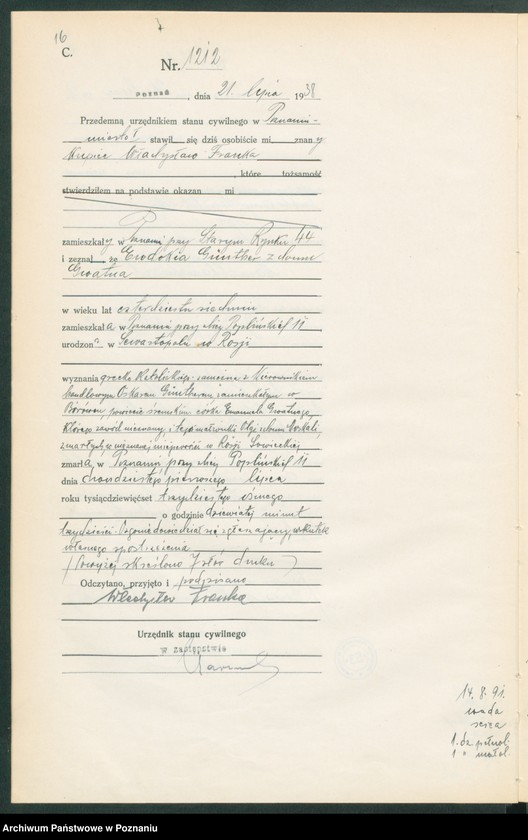 16
C.
Nr. 1212
Poznań, dnia 21. lipca 1938
Przedemną urzędnikiem stanu cywilnego w Poznaniu-
miasto stawił się dziś osobiście mi znany
Władysław Franka
, które tożsamość
stwierdziłem na podstawie okazan mi
zamieszkały w Poznaniu przy Starym Rynku 44
i zeznał że Ewdokia Günther z domu
Gwatna
w wieku lat czterdziestu siedmiu
zamieszkała w Poznaniu przy ulicy Poplińskich 11
urodzona w Sewastopolu w Rosji
wyznania grecko katolickiego zamężna z kierownikiem
handlowym Oskarem Güntherem zamieszkałym w
powiecie córka Emanuela
którego zawód nieznany i tego małżonki Olgi z domu
zmarłych w nieznanej miejscowości w Rosji Sowieckiej
zmarła w Poznaniu przy ulicy Poplińskich 11
dnia dwudziestego pierwszego lipca
roku tysiącdziewięćset trzydziestego ósmego
o godzinie dziewiątej minut
trzydzieści. O zgonie dowiedział się zgłaszający wskutek
własnego spostrzeżenia
(Powyżej skreślono 7 słów druku)
Odczytano, przyjęto i podpisano
Władysław Franka
Urzędnik stanu cywilnego
w zastępstwie
14. 8. 91.
wada
serca
Archiwum Państwowe w Poznaniu